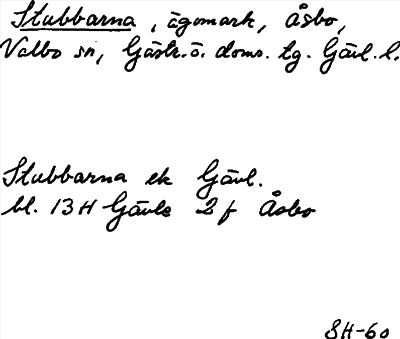 Stubbarna, ägomark, Åsbo,
Valbo sn, Gästr. ö. doms. tg. Gävl. l.
Stubbarna ek Gävl.
bl. 13H Gävle 2 f Åsbo
SH-60